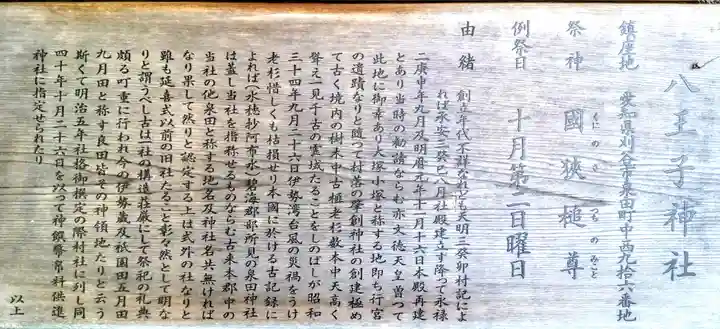 八王子神社
鎮座地　愛知県刈谷市泉田町中西九拾六番地
祭神　國狭槌尊
くにのさづちのみこと
例祭日　十月第二日曜日
由緒　創立年代不詳なれども天明三癸卯村記によ
れば承安三癸巳八月社殿建立す降つて永禄
二庚申年九月及明暦元年十一月十六日本殿再建
とあり当時の勧請ならむ亦文徳天皇曽つて
此地に御幸あり大塚小塚と称する地即ち行宮
の遺蹟なりと随つて村落の肇創神社の創建極め
て古く境内の樹木中古樫老杉数本中天高く
聳え一見千古の霊域たることをしのばしが昭和
三十四年九月二十六日伊勢湾台風の災禍をうけ
老杉惜しくも枯損せり本國に於ける古記録に
よれば(水穂抄阿布水)碧海郡部所見の泉田神社
は蓋し当社を指称せるものならむ古来本郡中の
当社の他泉田と称する地名及神社名共無ければ
なり果して然りと認定する上は式外の社なりと
雖も延喜式以前の旧社たること彰々然として明な
りと謂うべし古は社の構造荘厳にして祭祀の礼典
頗る叮重に行われ今の伊勢蔵及祇園田五月田
九月田と称す良田皆その神領地たりと云う
斯くて明治五年社格御撰定の際村社に列し同
四十年十月二十六日を以つて神饌幣帛料供進
神社に指定せられたり
以上